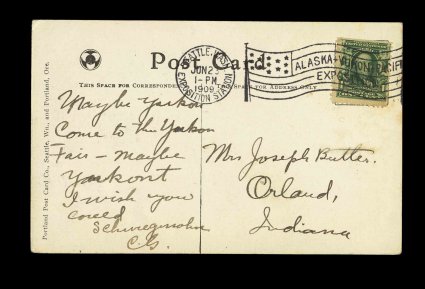 Post Card
SEATTLE, WASH.
JUN 23
1-PM
1909
EXPOSITION STATION
ALASKA-YUKON-PACIFIC
EXPOSITION
THIS SPACE FOR CORRESPONDENCE
SPACE FOR ADDRESS ONLY
Portland Post Card Co., Seattle, Wn., and Portland, Ore.
Maybe
Come to the Yukon
Fair - maybe
I wish you
could
Mrs Joseph Butler.
Orland,
Indiana